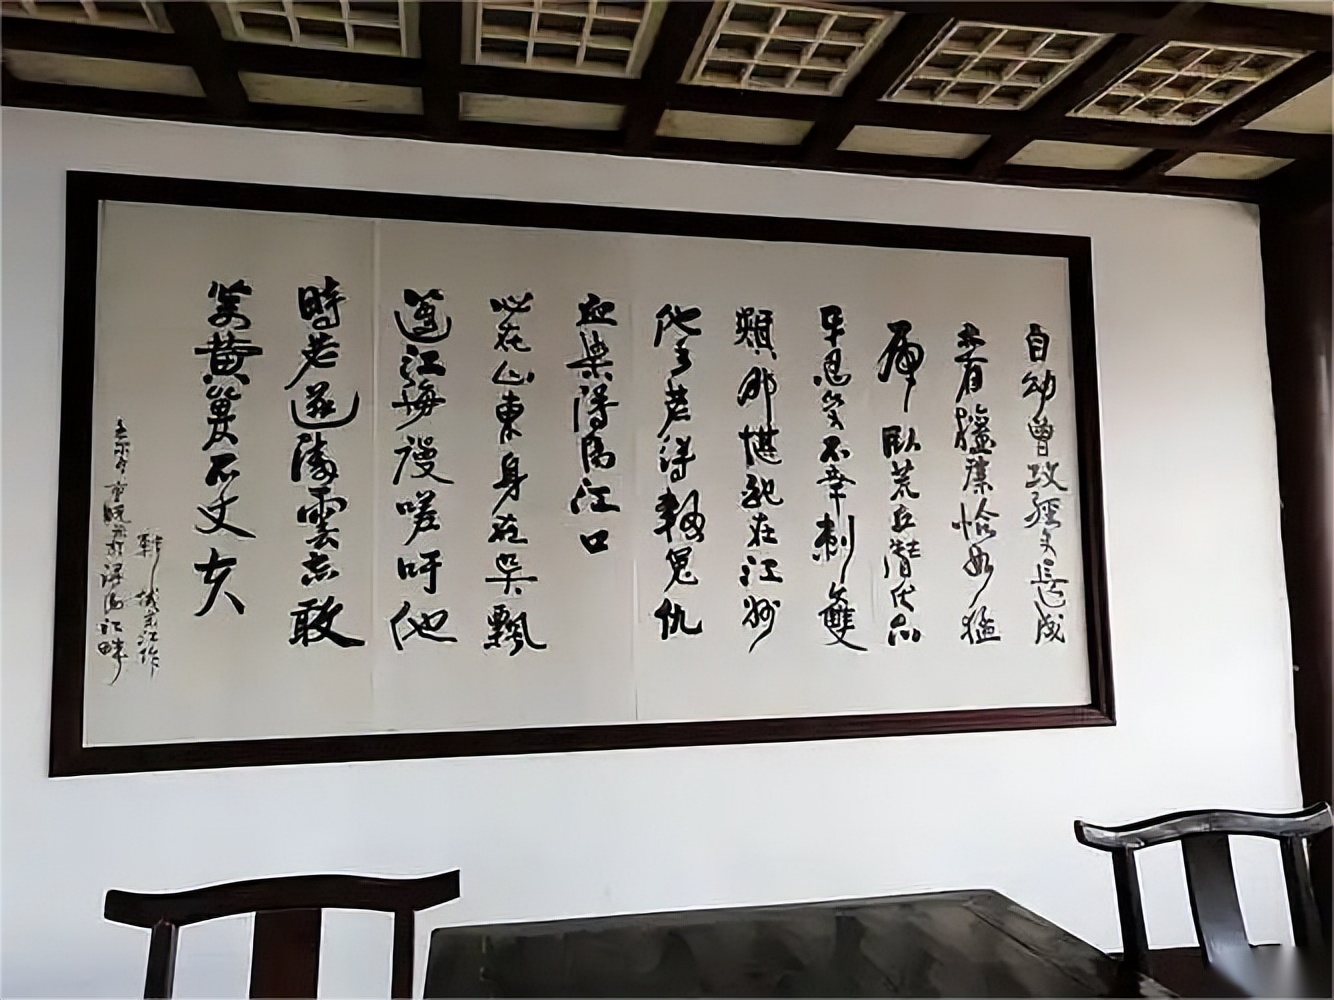 自幼曾攻經史長成
亦有權謀恰如猛
虎臥荒丘潛伏爪
牙忍受不幸刺文雙
頰那堪配在江州
他年若得報冤仇
血染潯陽江口
心在山東身在吳飄
蓬江海謾嗟吁他
時若遂凌雲志敢
笑黃巢不丈夫
鄆城宋江作
書於潯陽江畔